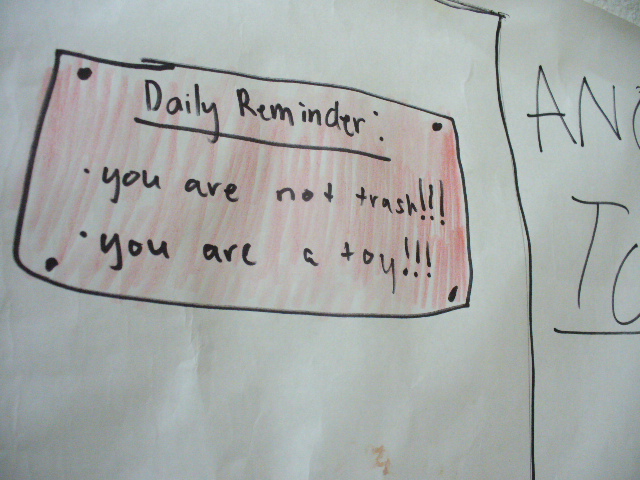 Daily Reminder:
· you are not trash!!!
· you are a toy!!!